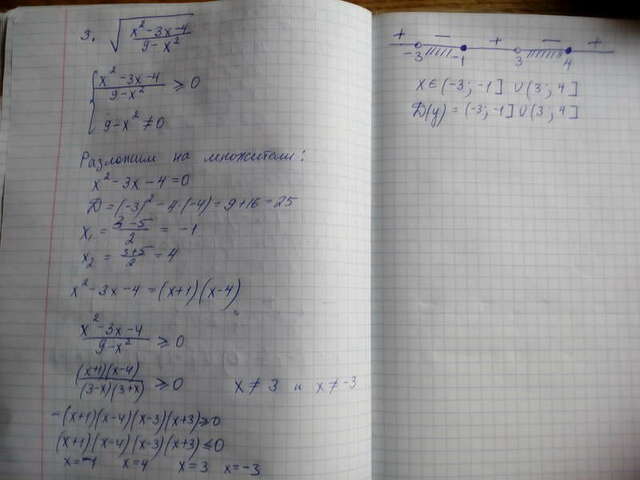 3. √((x²-3x-4)/(9-x²))
{ (x²-3x-4)/(9-x²) ≥ 0
9-x² ≠ 0
Разложим на множители:
x²-3x-4=0
D=(-3)²-4·(-4)=9+16=25
x₁ = (3-5)/2 = -1
x₂ = (3+5)/2 = 4
x²-3x-4=(x+1)(x-4)
(x²-3x-4)/(9-x²) ≥ 0
((x+1)(x-4))/((3-x)(3+x)) ≥ 0 x ≠ 3 и x ≠ -3
-(x+1)(x-4)(x-3)(x+3) ≥ 0
(x+1)(x-4)(x-3)(x+3) ≤ 0
x=-1 x=4 x=3 x=-3
+ - + - +
-3 -1 3 4
x∈(-3;-1]∪(3;4]
D(y)=(-3;-1]∪(3;4]